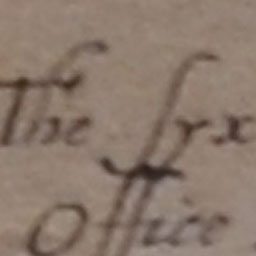 The ſyx
Office